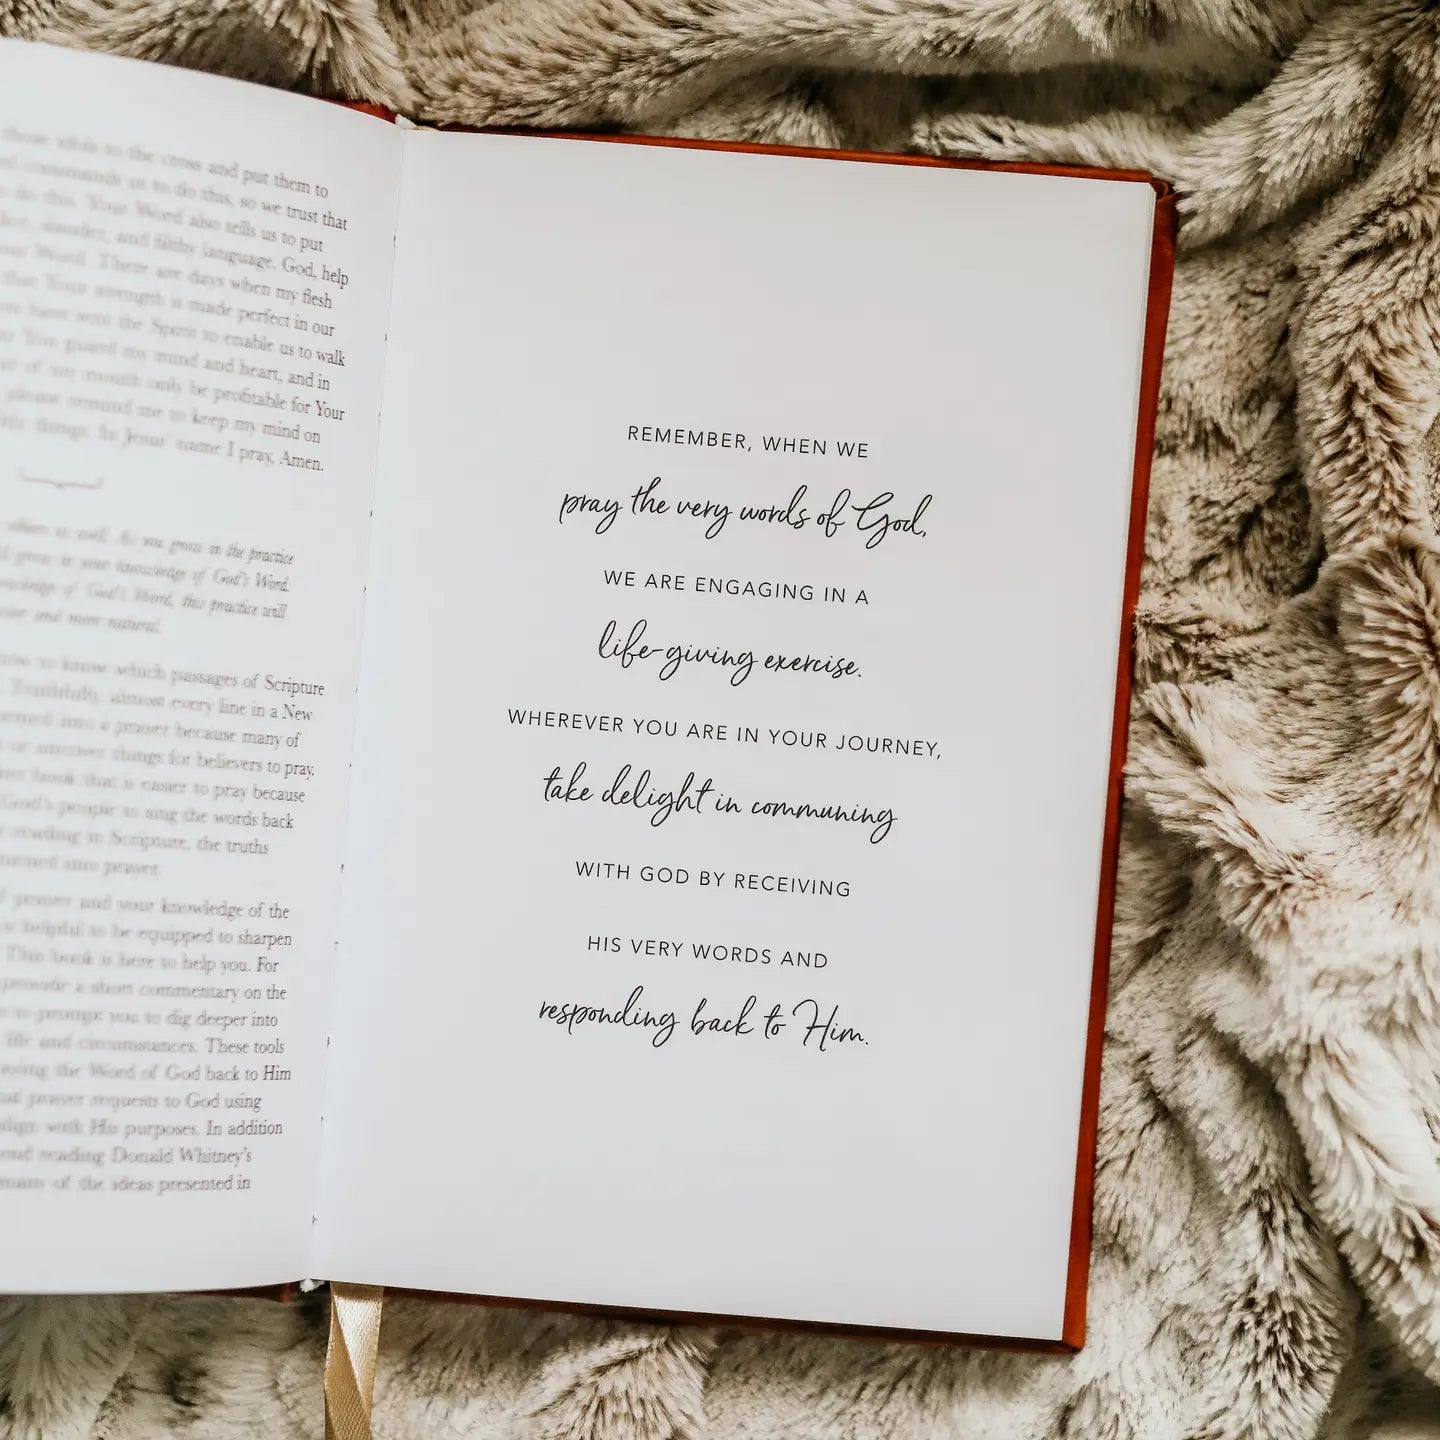 those idols to the cross and put them to
commands us to do this, so we trust that
do this. Your Word also tells us to put
slander, and filthy language. God, help
Word. There are days when my flesh
that Your strength is made perfect in our
have sent the Spirit to enable us to walk
You guard my mind and heart, and in
of my mouth only be profitable for Your
please remind me to keep my mind on
things. In Jesus' name I pray, Amen.
as well. As you grow in the practice
grow in your knowledge of God's Word.
of God's Word, this practice will
and more natural.
how to know which passages of Scripture
Truthfully, almost every line in a New
turned into a prayer because many of
or uncover things for believers to pray.
book that is easier to pray because
God's people to sing the words back
reading in Scripture, the truths
turned into prayer.
prayer and your knowledge of the
helpful to be equipped to sharpen
This book is here to help you. For
provide a short commentary on the
to prompt you to dig deeper into
life and circumstances. These tools
the Word of God back to Him
prayer requests to God using
align with His purposes. In addition
reading Donald Whitney's
many of the ideas presented in
REMEMBER, WHEN WE
pray the very words of God,
WE ARE ENGAGING IN A
life-giving exercise.
WHEREVER YOU ARE IN YOUR JOURNEY,
take delight in communing
WITH GOD BY RECEIVING
HIS VERY WORDS AND
responding back to Him.